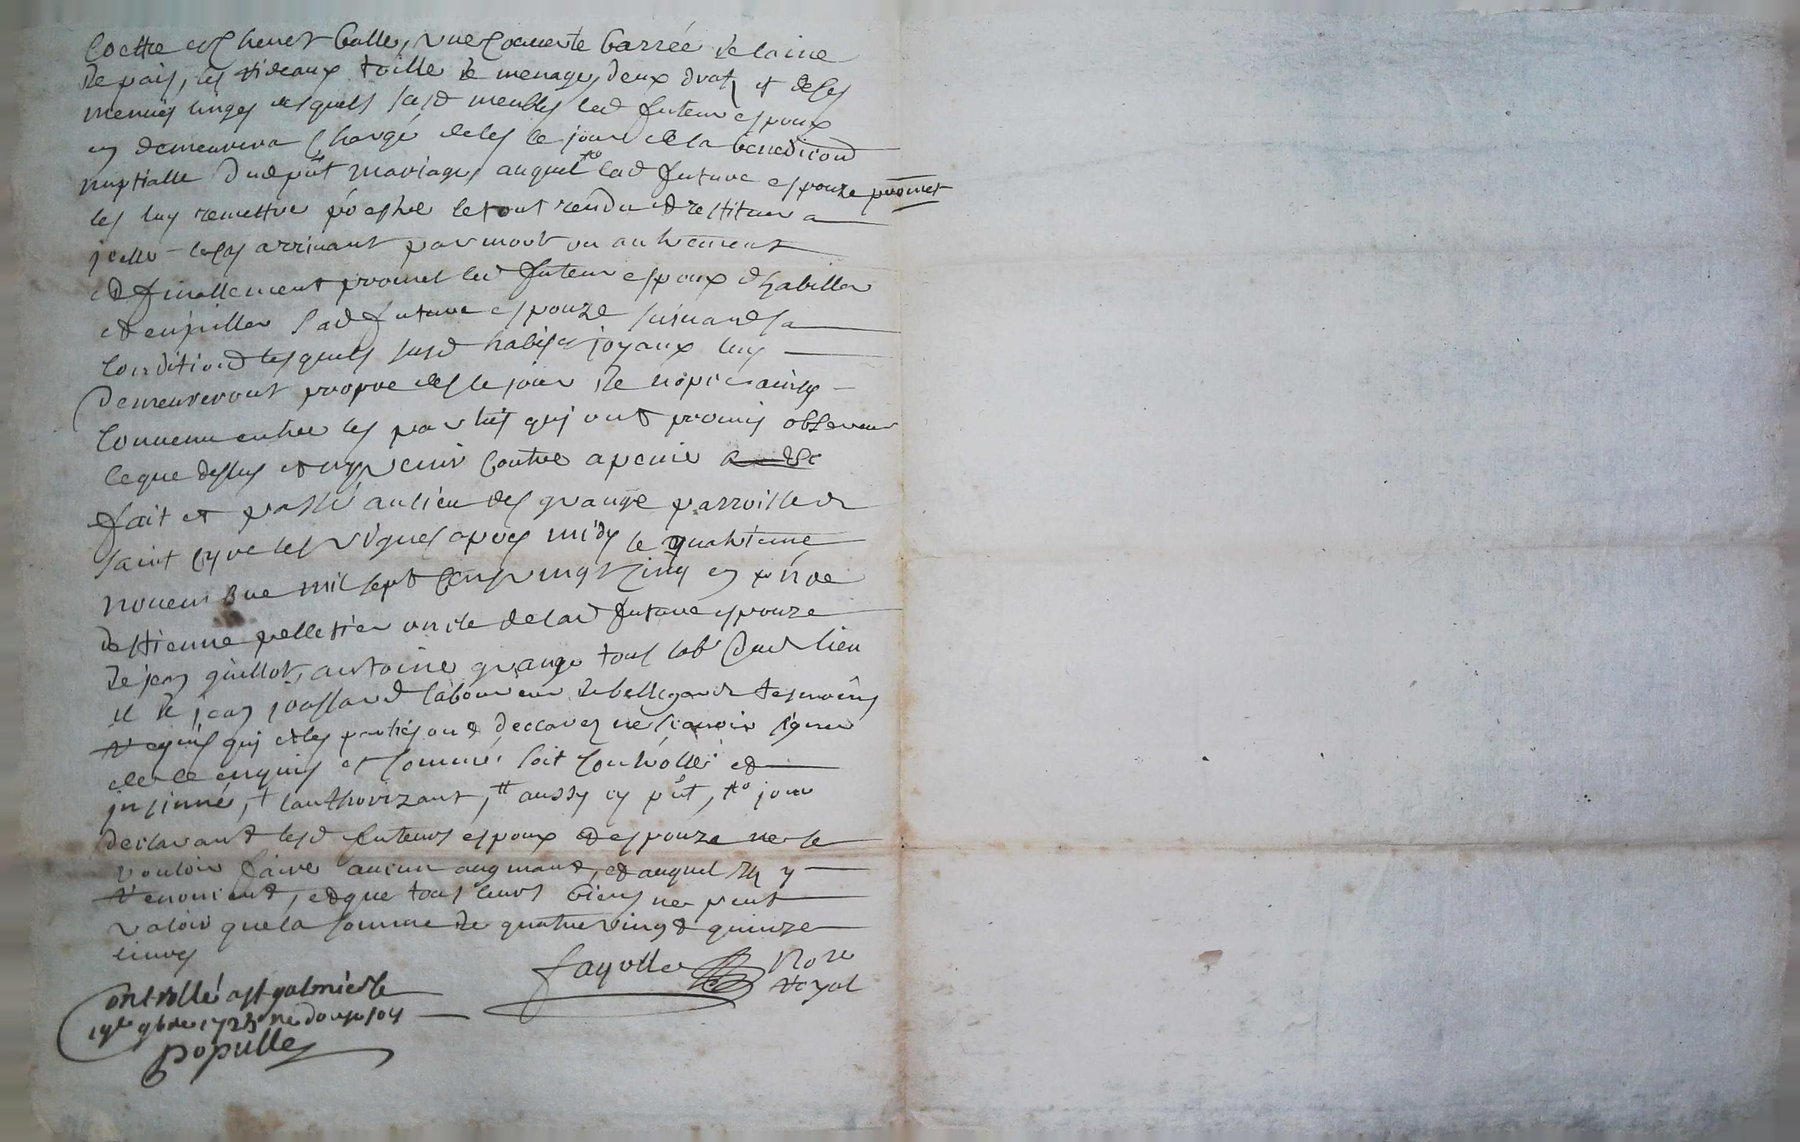 coette et chevet balle, une couverte barrée de laine
de païs, les rideaux toille de menage, deux drats et deses
menues linges lesquels susd meubles led futeur espoux
en demeurera chargé deles le jour de la benediction
nuptialle dud pnt mariage, auquel led future espouze promet
les luy remettre
icelle le cas arrivant par mort ou autrement
et finallement promet led futeur espoux d'habiller
et enjoiller lad future espouze suivant sa
condition lesquels susd habits et joyaux luy
demeureront propre des le jour de nopce ainsy
convenu entre les parties qui ont promis observer
ce que dessus et n'y venir contre a peine
fait et passé au lieu des grange parroisse de
saint Cyre les vignes apres midy le quatrieme
novembre mil sept cens vingt cinq en pnce
d'estienne pelletier oncle de lad future espouze
de jean guillot, antoine grange tous lab dud lieu
et de jean joassard laboureur de bellegarde tesmoins
requis qui et les parties ont declarez ne scavoir signer
de ce enquis et sommé, soit controllé et
insinué, + lauthorizant, tt aussy cy pnt, jour
declarant lesd futeurs espoux et espouze ne se
vouloir faire aucun augmant, et auquel ils y
renoncient, et que tous leurs biens ne peut
valoir que la somme de quatre vingt quinze
livres
fayolle Nore
royal
Controllé a st galmier le
9bre 1725
populle